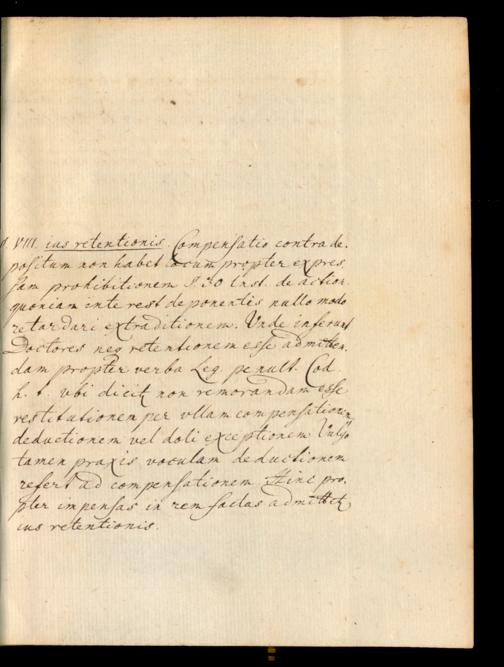 §. VIII. ius retentionis. Compensatio contra de:
positum non habet locum propter expres,
sam prohibitionem §. 30 Inst. de action.
quoniam inte rest de ponentis nullo modo
retardari extraditionem. Unde inferunt
Doctores neq retentionem esse admitten,
dam propter verba Leg. penult. Cod.
h. t. ubi dicitz non remorandam esse
restitutionem per ullam compensationem
deductionem vel doli exceptionem. Vulgo
tamen praxis voculam deductionem
refert ad compensationem. Hinc pro,
pter impensas in rem factas admittitz
ius retentionis.